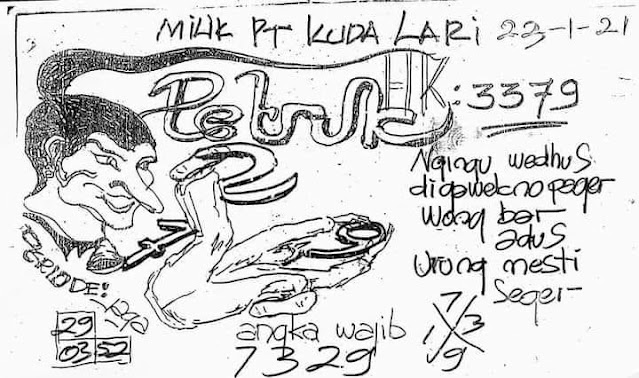 MILIK PT KUDA LARI 22-1-21
Petruk
HK: 3379
Ngingu wedhus
digawekno pager
Wong bar
adus
Urung mesti
Seger
PERIODE:
29
03 52
angka wajib
7329
7
1 X 3
9